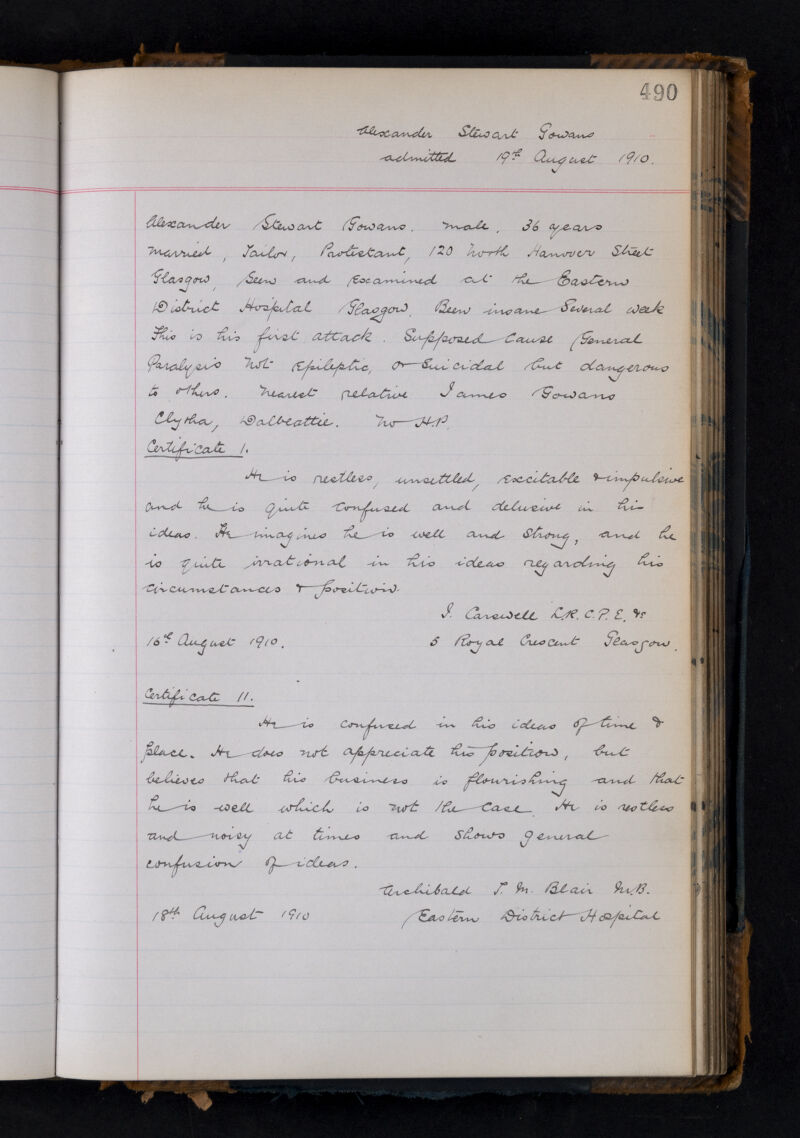 490
Alexander Stewart Gowans
admitted 19th August 1910.
Alexander Stewart Gowans. male, 36 years
married, Tailor, Protestant, 120 North Hanover Street
Glasgow, Seen and Examined at the Eastern
District Hospital Glasgow. Been insane Several week
This is his first attack. Supposed Cause General
Paralysis Not Epileptic, or Suicidal but dangerous
to others. Nearest relative James Gowans
Dalbeattie. No H.P.
Certificate I.
He is restless, unsettled, excitable & impulsive
and he is quite confused and delusive in his
ideas. He imagines he is well and strong, and he
is quite irrational in his ideas regarding his
circumstances & position.
J. Carswell L.R.C.P.E. &c
16th August 1910. 5 Royal Crescent Glasgow.
Certificate II.
He is confused in his ideas of time &
place. He does not appreciate his position, but
believes that his business is flourishing and that
he is well which is not the case. He is restless
and noisy at times and shows general
confusion of ideas.
Archibald J. M. Blair M.B.
18th August 1910 Eastern District Hospital